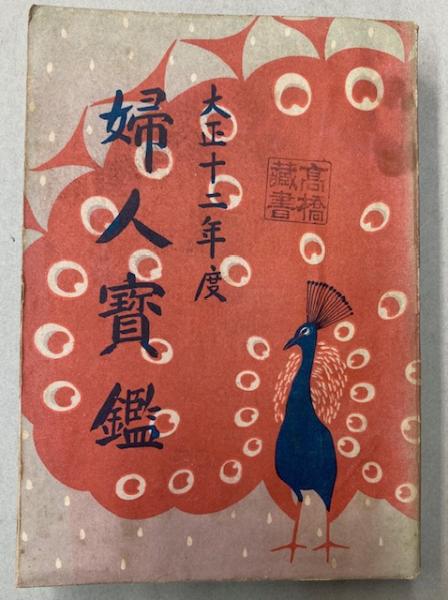 大正十二年度
婦人寶鑑
高橋
藏書